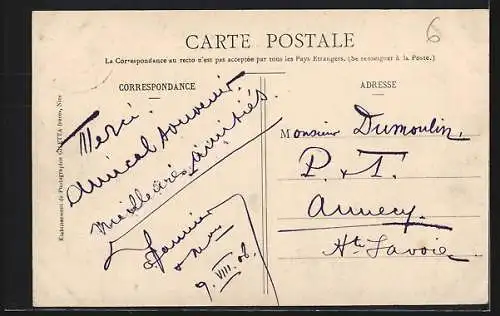 6
CARTE POSTALE
La Correspondance au recto n'est pas acceptée par tous les Pays Etrangers. (Se renseigner à la Poste.)
CORRESPONDANCE
ADRESSE
Merci.
Amical souvenir
amitiés.
9. VIII. 08.
Monsieur Dumoulin,
P. & T.
Annecy.
Hte Savoie
Etablissements de Photographie GILETTA frères, Nice